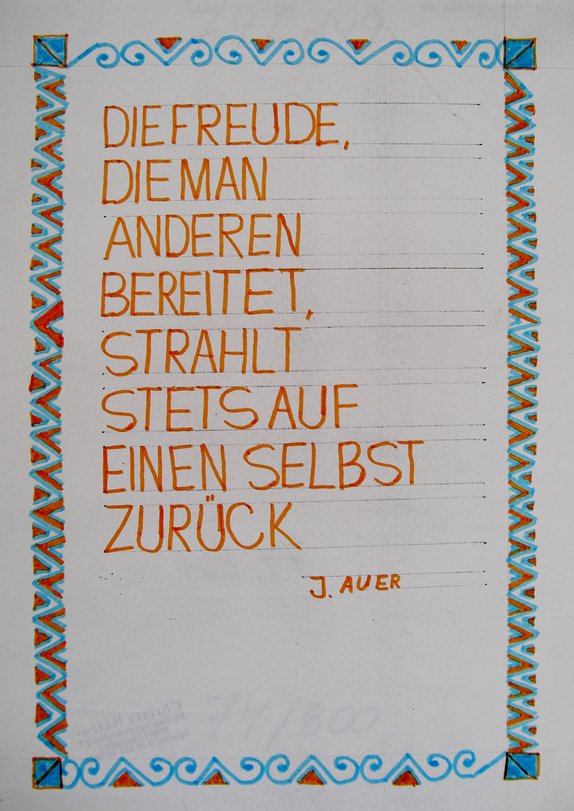 DIE FREUDE,
DIE MAN
ANDEREN
BEREITET,
STRAHLT
STETS AUF
EINEN SELBST
ZURÜCK
J. AUER
Christa Netzer